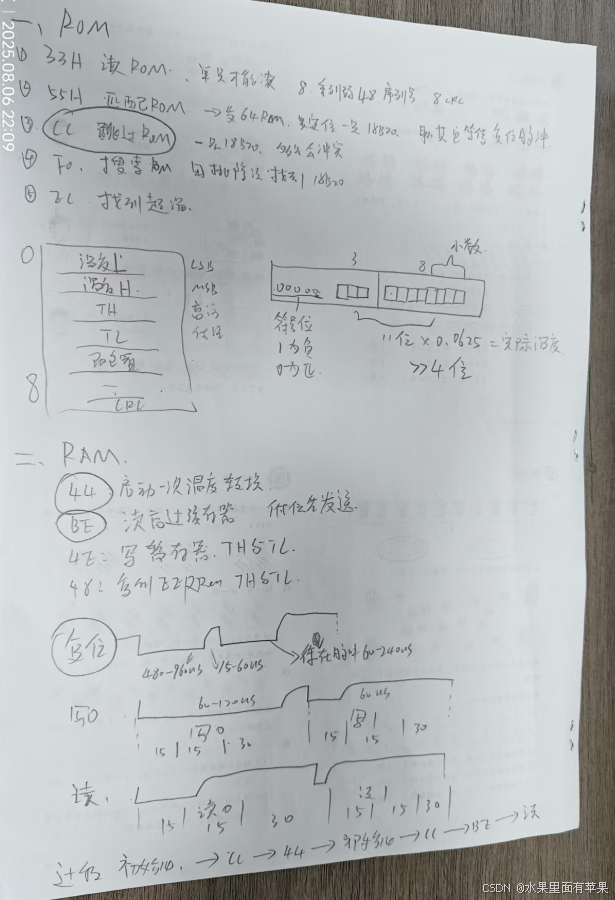 2025.08.06 22:09
一、ROM
① 33H 读ROM、单只才能读 8系列码 48序列号 8CRC
② 55H 匹配ROM → 发64ROM,
③ CC 跳过ROM 一只18B20,
④ F0、搜索ROM 用排除法找到18B20
⑤ EC 找到超温
小数
3 8
0
温度L LSB
温度H MSB
TH 高污
TL
配置
8
CRC
00000
符号位
1为负
0为正
11位 × 0.0625 = 实际温度
>>4位
二、RAM.
44 启动一次温度转换
BE 读高速缓存器 低位先发送
4E: 写暂存器、TH与TL
48: 复制EEPRom TH与TL.
复位
480-960us 15-60us 存在脉冲60-240us
写0 60-120us 60us
写0 写1
15 15 30 15 15 30
读、
读0 读1
15 15 30 15 15 30
过程 初始化、→ CC → 44 → 初始化 → CC → BE → 读
CSDN @水果里面有苹果